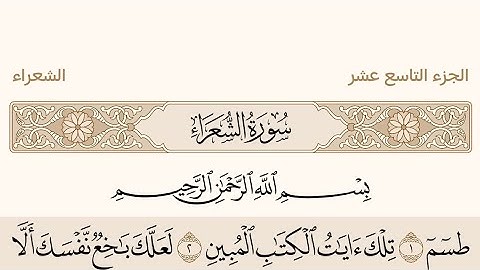 الجزء التاسع عشر
الشعراء
سُورَةُ الشُّعَرَاءِ
بِسْمِ ٱللَّهِ ٱلرَّحْمَٰنِ ٱلرَّحِيمِ
طسٓمٓ ١ تِلْكَ ءَايَٰتُ ٱلْكِتَٰبِ ٱلْمُبِينِ ٢ لَعَلَّكَ بَٰخِعٌ نَّفْسَكَ أَلَّا